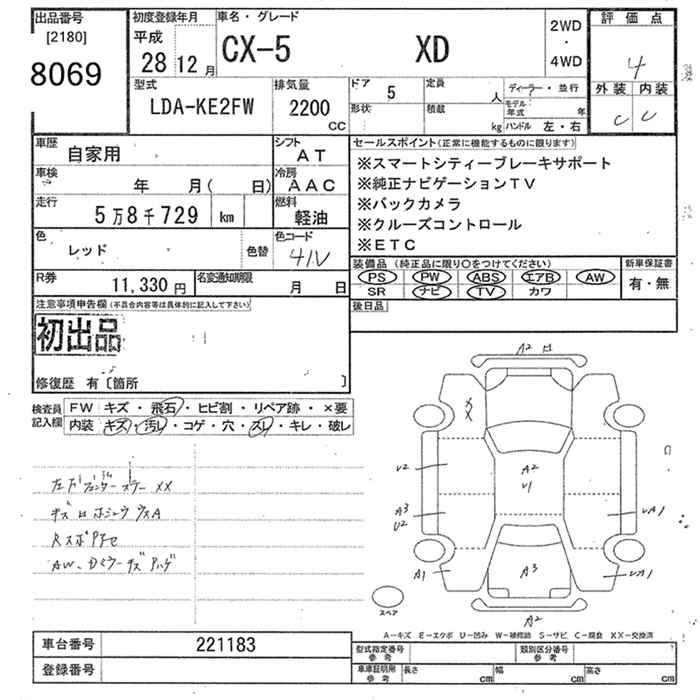 出品番号
[2180]
8069
初度登録年月
平成
28 12月
車名・グレード
CX-5 XD
2WD
・
4WD
評価点
4
外装 内装
C C
型式
LDA-KE2FW
排気量
2200
CC
ドア 5
形状
定員 人
積載 kg
ディーラー・並行
モデル年式 年
ハンドル 左・右
車歴 自家用
シフト AT
車検 年 月( 日)
冷房 AAC
走行 5万8千729 km
燃料 軽油
色 レッド 色替
色コード 41V
R券 11,330円
名変通知期限 月 日
セールスポイント(正常に機能するものに限ります)
※スマートシティーブレーキサポート
※純正ナビゲーションTV
※バックカメラ
※クルーズコントロール
※ETC
装備品 (純正品に限り○をつけてください)
PS PW ABS エアB AW
SR ナビ TV カワ
新車保証書
有・無
後日品
注意事項申告欄(不具合内容等は具体的に記入して下さい)
初出品
修復歴 有〔箇所 〕
検査員記入欄
FW キズ・飛石・ヒビ割・リペア跡・×要
内装 キズ・汚レ・コゲ・穴・スレ・キレ・破レ
XX
AW、
A2
X
X
U2
A2
U1
A3
U2
UA1
A1
A3
UA1
A2
スペア
A-キズ E-エクボ U-凹み W-補修跡 S-サビ C-腐食 XX-交換済
車台番号 221183
登録番号
型式指定番号 参考
類別区分番号 参考
車庫証明用 参考
長さ cm
幅 cm
高さ cm